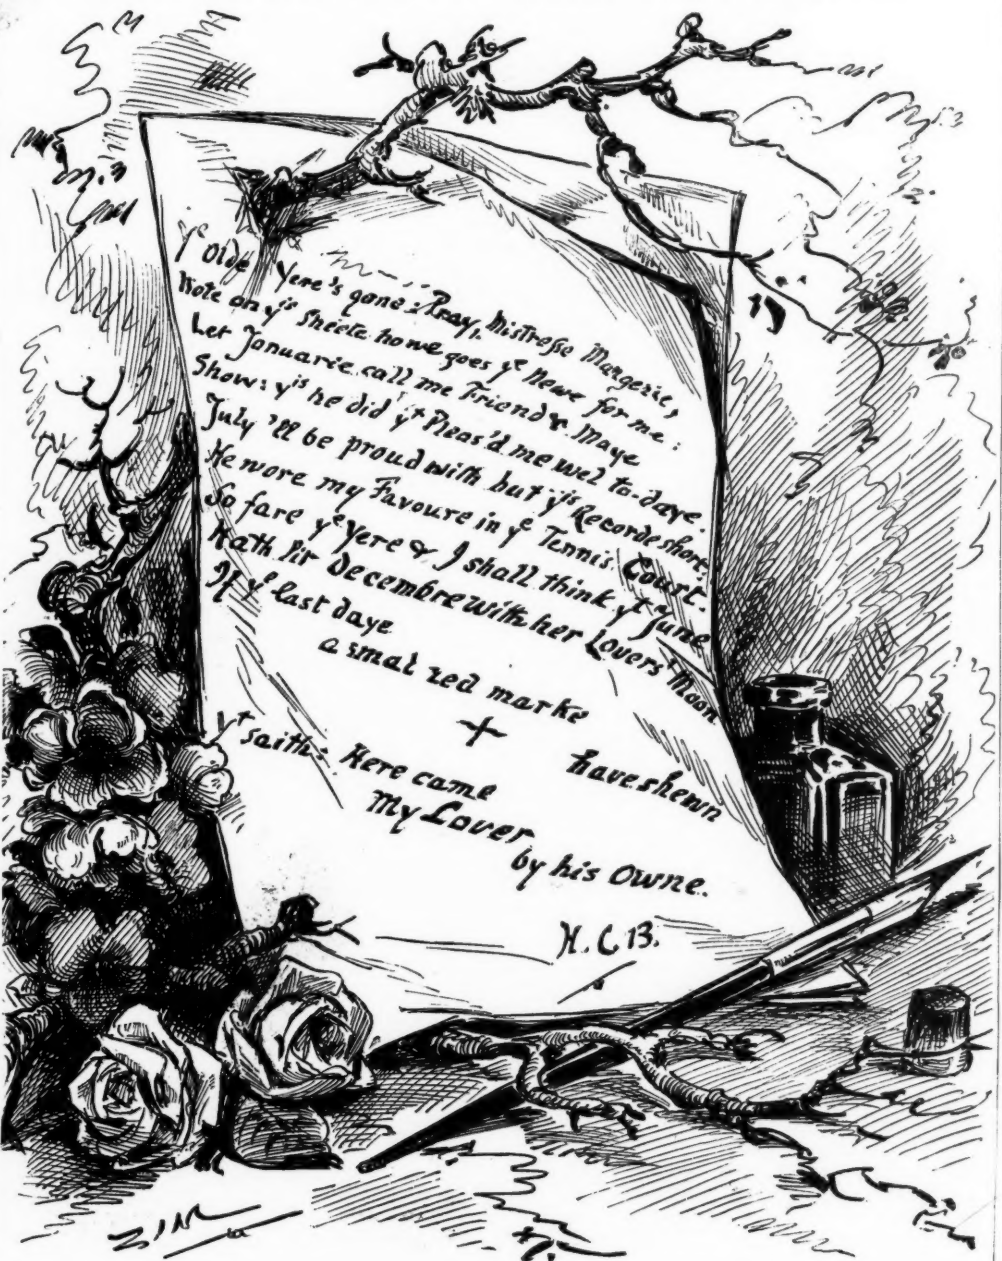 Ye Olde Yere's gone: Pray, Mistresse Margerie,
Note on ys sheete howe goes ye Newe for me:
Let Januarie call me Friend & Maye
Show: ys he did yt Pleas'd me wel to-daye.
July 'll be proud with but ys Recorde short:
He wore my Favoure in ye Tennis Court.
So fare ye Yere & I shall think yt June
Hath Sir Decembre with her Lovers' Moon
If ye last daye
a smal red marke
+
have shewn
yt saith: Here came
My Lover
by his Owne.
H. C. B.
ZIM